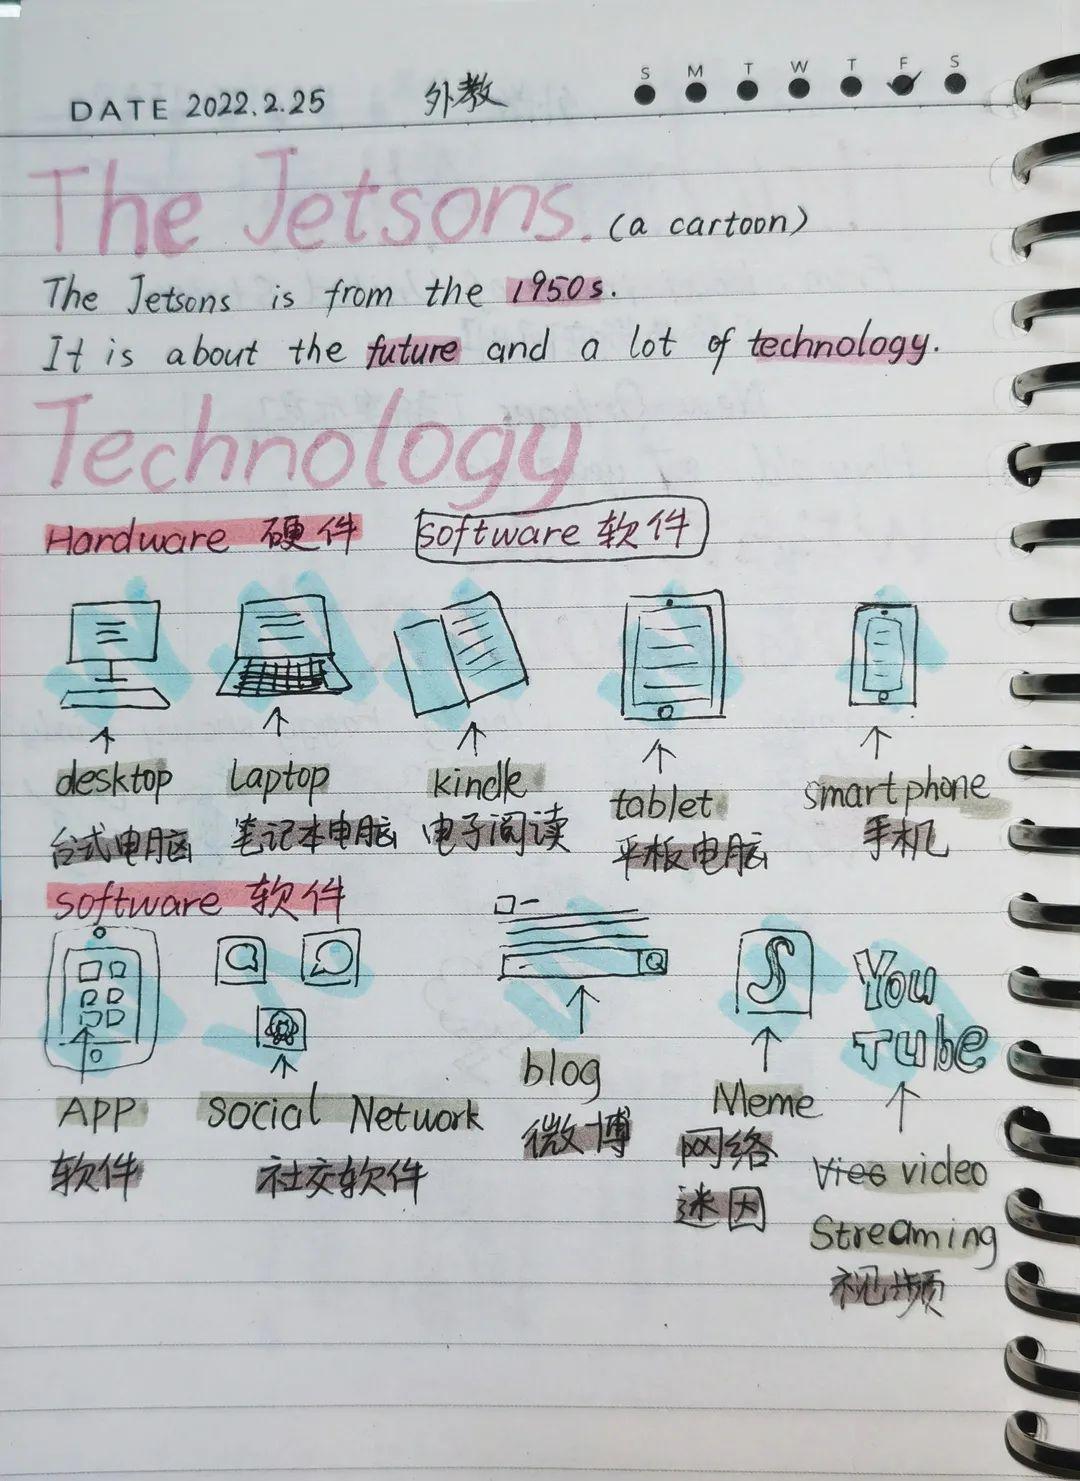 DATE 2022.2.25 外教 S M T W T F S
The Jetsons. (a cartoon)
The Jetsons is from the 1950s.
It is about the future and a lot of technology.
Technology
Hardware 硬件 Software 软件
desktop Laptop kindle tablet smartphone
台式电脑 笔记本电脑 电子阅读 平板电脑 手机
software 软件
You
Tube
APP social Network blog Meme
软件 社交软件 微博 网络
迷因
Vies video
Streaming
视频